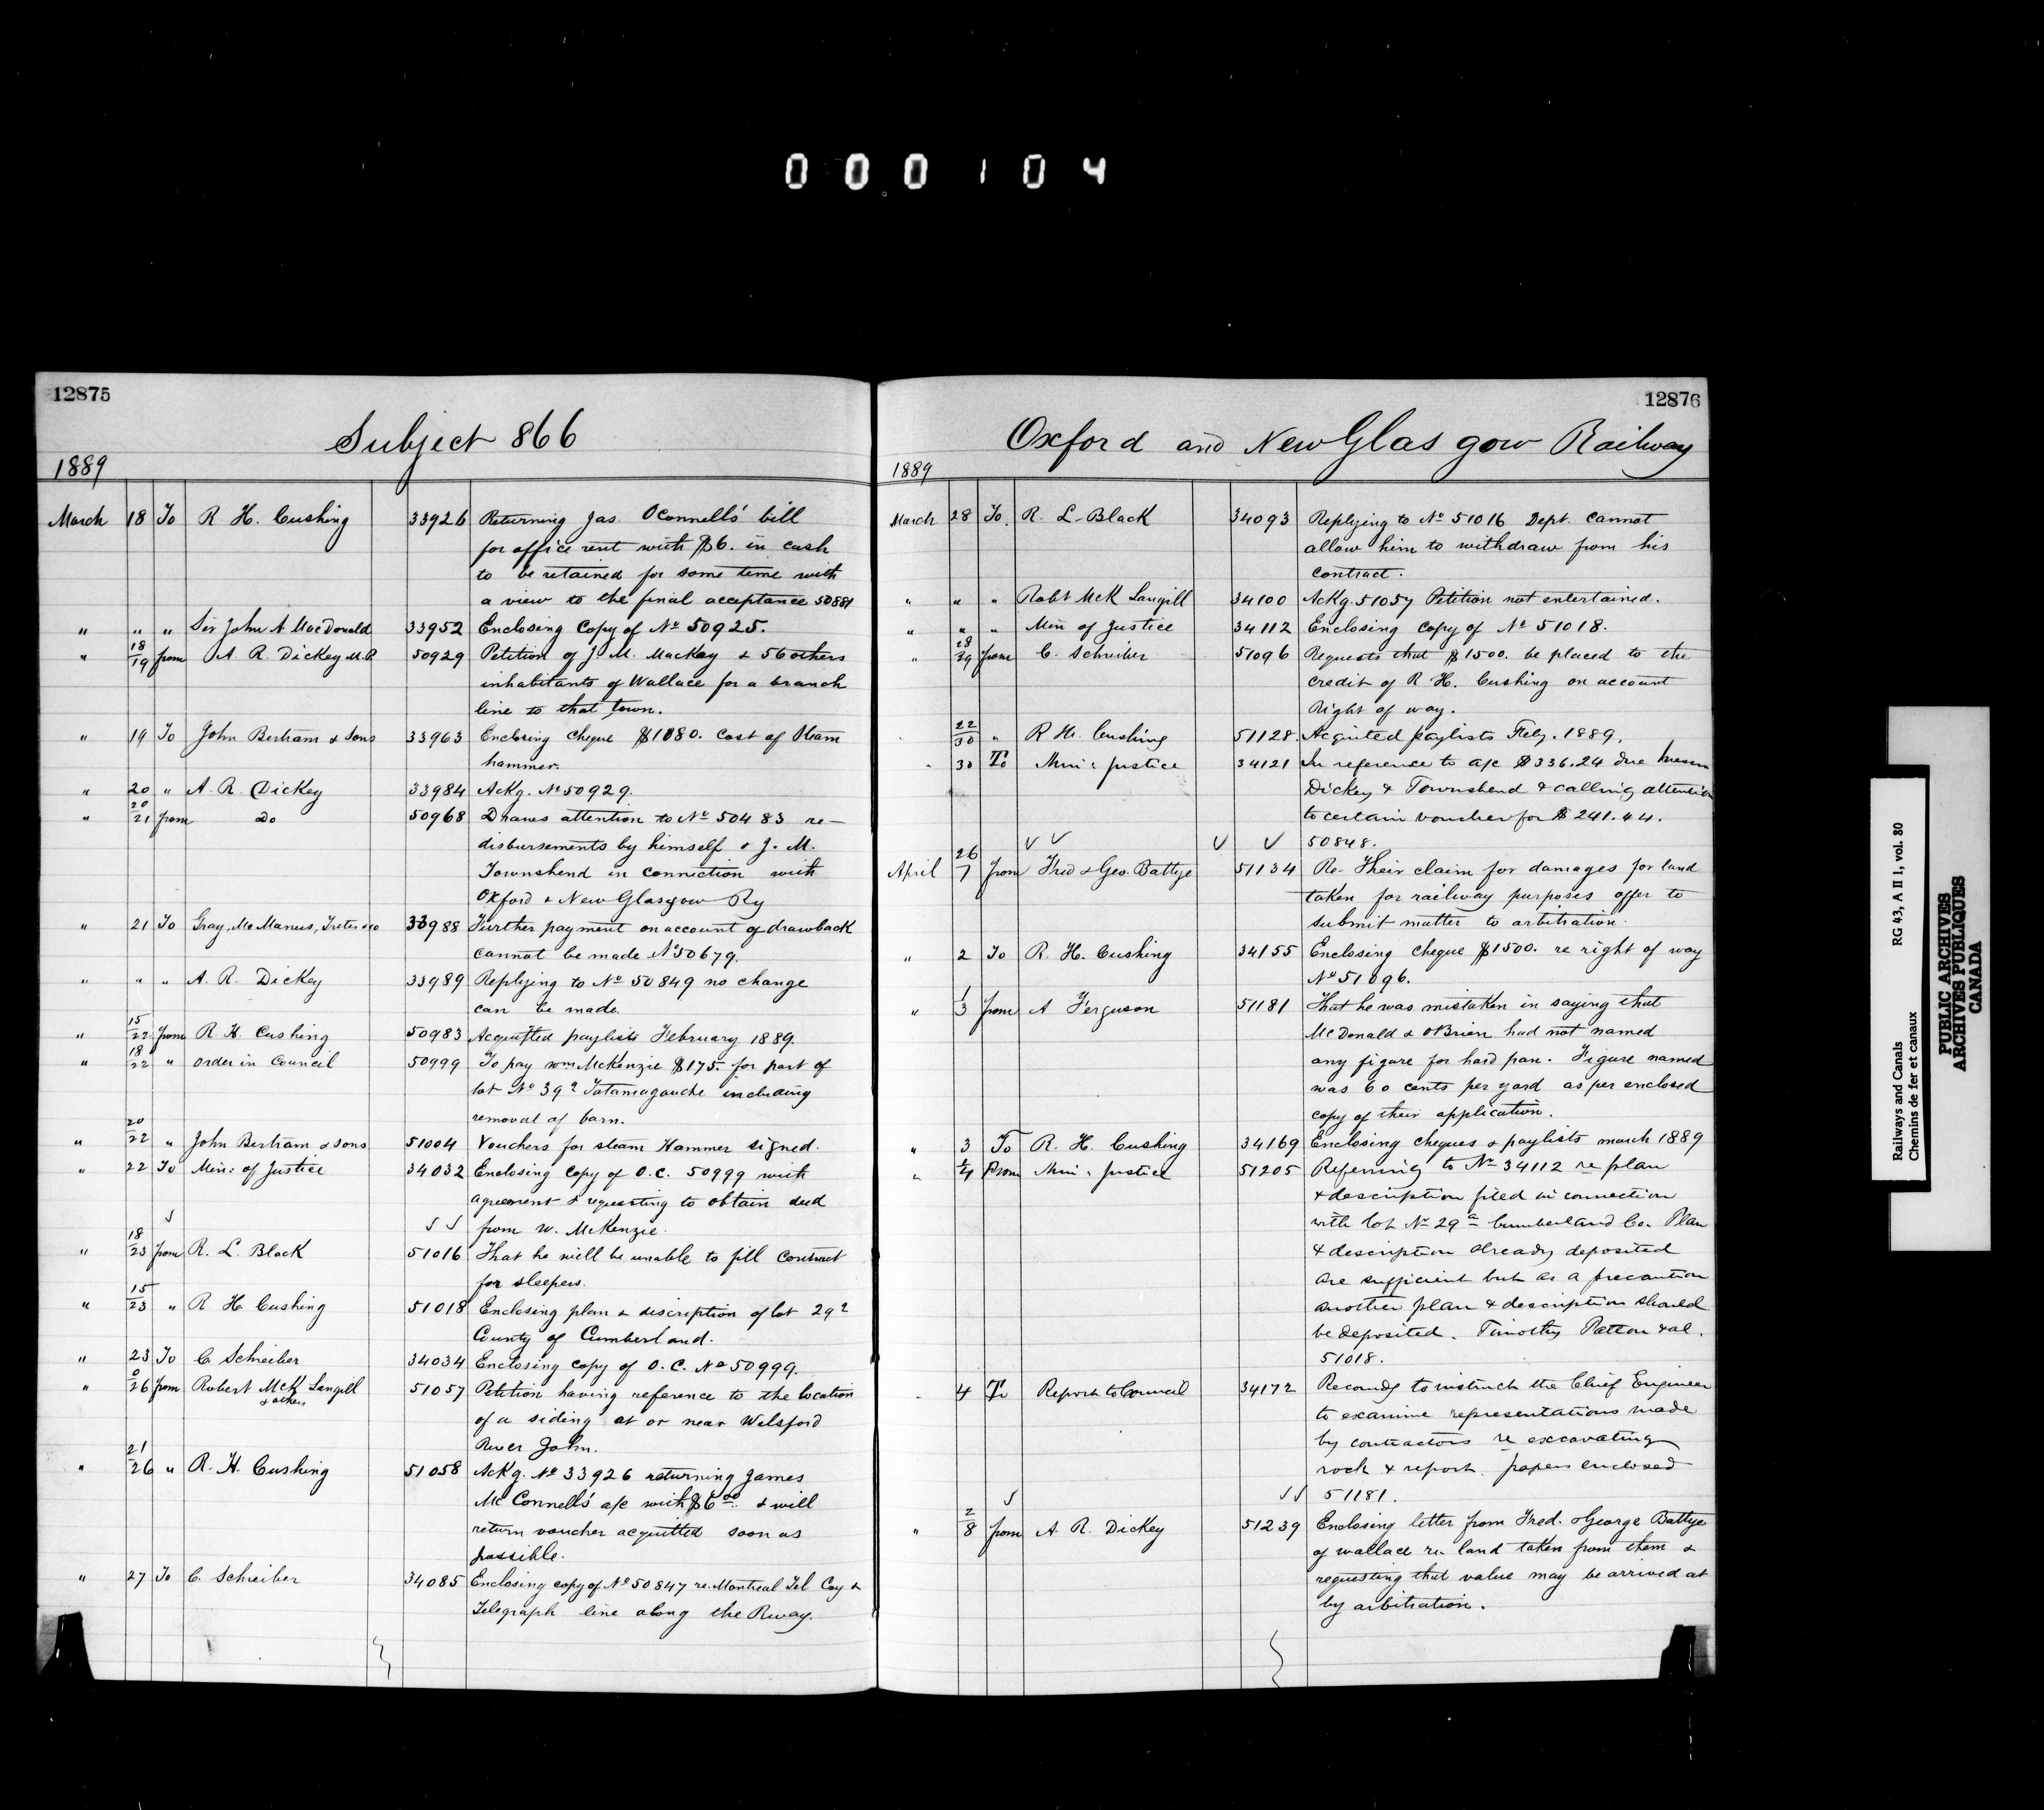 000104
12875
Subject 866
1889
March 18 To R H. Cushing 33926 Returning Jas. OConnells' bill
for office rent with $6. in cash
to be retained for some time with
a view to the final acceptance 50881
" " " Sir John A MacDonald 33952 Enclosing Copy of No 50925.
" 18/19 from A. R. Dickey M.P. 50929 Petition of J. M. MacKay & 56 others
inhabitants of Wallace for a branch
line to that town.
" 19 To John Bertram & Sons 33963 Enclosing Cheque $1080. Cost of Steam
hammer.
" 20 " A. R. Dickey 33984 Ackg. No 50929.
" 20/21 from Do 50968 Draws attention to No 50483 re-
disbursements by himself & J. M.
Townshend in conniction with
Oxford & New Glasgow Ry
" 21 To Gray, McManus, & Co 33988 Further payment on account of drawback
cannot be made No 50679.
" " " A. R. Dickey 33989 Replying to No 50849 no change
can be made.
" 15/22 from R. H. Cushing 50983 Acquitted paylists February 1889.
" 18/22 " Order in Council 50999 To pay Wm McKenzie $175. for part of
lot No 39 Tatamagouche including
removal of barn.
" 20/22 " John Bertram & Sons 51004 Vouchers for steam Hammer signed.
" 22 To Min: of Justice 34032 Enclosing Copy of O.C. 50999 with
agreement & requesting to obtain deed
from W. McKenzie.
" 18/23 from R. L. Black 51016 That he will be unable to fill contract
for sleepers.
" 15/23 " R H. Cushing 51018 Enclosing plan & discription of lot 29
County of Cumberland.
" 23 To C. Schreiber 34034 Enclosing copy of O.C. No 50999.
" 0/26 from Robert McK Langill & others 51057 Petition having reference to the location
of a siding at or near Welsford
River John.
" 21/26 " R. H. Cushing 51058 Ackg. No 33926 returning James
Mc Connell's a/c with $6.00 & will
return voucher acquitted soon as
possible.
" 27 To C. Schreiber 34085 Enclosing copy of No 50847 re. Montreal Tel Coy &
Telegraph line along the Rway.
12876
Oxford and New Glasgow Railway
1889
March 28 To R. L. Black 34093 Replying to No 51016 Dept. cannot
allow him to withdraw from his
contract.
" " " Robt McK Langill 34100 Ackg. 51057 Petition not entertained.
" " " Min of Justice 34112 Enclosing copy of No 51018.
" 28/29 from C. Schreiber 51096 Requests that $1500. be placed to the
credit of R H. Cushing on account
Right of way.
" 22/30 " R H. Cushing 51128 Acquited paylists Feby. 1889.
" 30 To Min: Justice 34121 In reference to a/c $336.24 due Messrs
Dickey & Townshend & calling attention
to certain voucher for $241.44.
50848.
April 26/1 from Fred & Geo. Battye 51134 Re- Their claim for damages for land
taken for railway purposes offer to
submit matter to arbitration.
" 2 To R. H. Cushing 34155 Enclosing cheque $1500. re right of way
No 51096.
" 1/3 from A Ferguson 51181 That he was mistaken in saying that
McDonald & OBrien had not named
any figure for hard pan. Figure named
was 60 cents per yard as per enclosed
copy of their application.
" 3 To R. H. Cushing 34169 Enclosing cheques & paylists march 1889
" 2/4 From Min: Justice 51205 Referring to No 34112 re plan
& description filed in connection
with lot No 29a Cumberland Co. Plan
& description already deposited
are sufficient but as a precaution
another plan & description should
be deposited. Timothy Patton et al.
51018.
" 4 To Report to Council 34172 Recomdg to instruct the Chief Engineer
to examine representations made
by contractors re excavating
rock & report. papers enclosed
51181.
" 2/8 from A. R. Dickey 51239 Enclosing letter from Fred. & George Battye
of Wallace re land taken from them &
requesting that value may be arrived at
by arbitration.
Railways and Canals RG 43, A II 1, vol. 80
Chemins de fer et canaux
PUBLIC ARCHIVES
ARCHIVES PUBLIQUES
CANADA